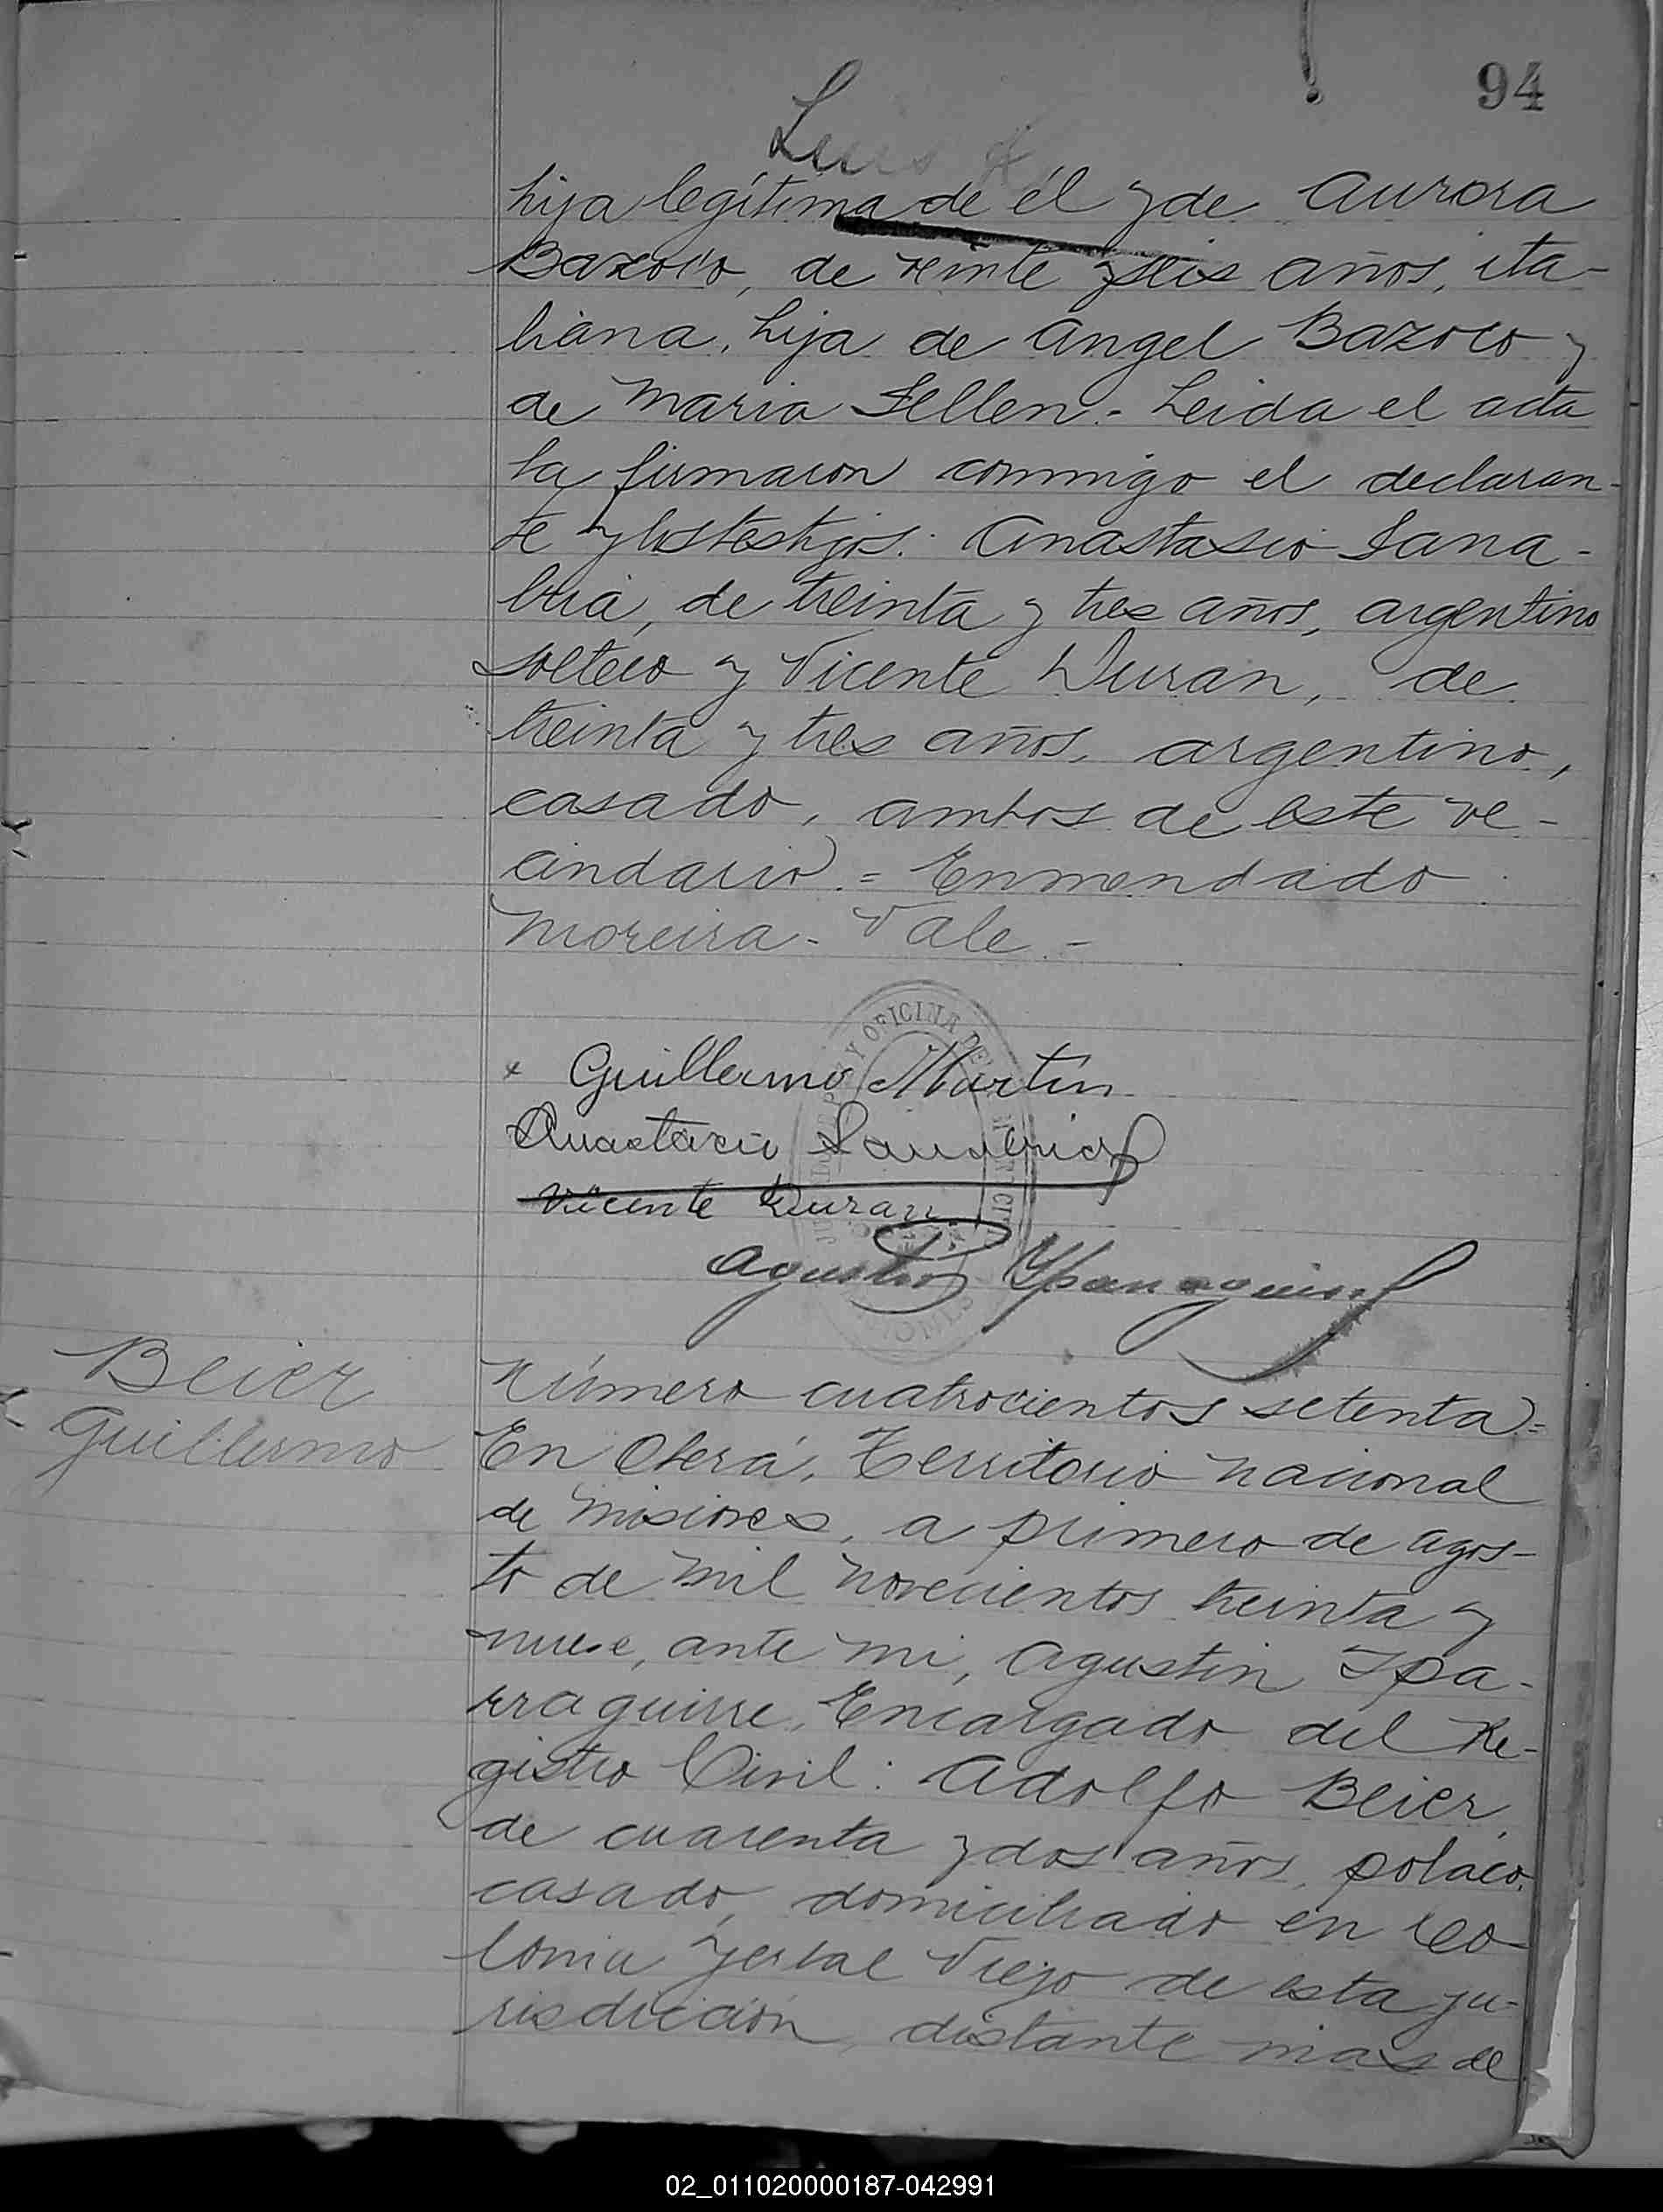 94
Luis
hija legítima de él y de Aurora
Bazoco, de veinte y seis años, ita-
liana, hija de Angel Bazoco y
de Maria Sellen.- Leida el acta
la firmaron conmigo el declaran-
te y los testigos: Anastasio Sana-
bria, de treinta y tres años, argentino
soltero y Vicente Duran, de
treinta y tres años, argentino,
casado, ambos de este ve-
cindario.= Enmendado
Moreira - Vale -
x Guillermo Martín
Anastacio Sanabria
Vicente Duran
Agustin Yparraguirre
OFICINA DE
Beier
Guillermo
Número cuatrocientos setenta=
En Oberá, Territorio Nacional
de Misiones, a primero de agos-
to de mil novecientos treinta y
nueve, ante mi, Agustin Ipa-
rraguirre, Encargado del Re-
gistro Civil: Adolfo Beier,
de cuarenta y dos años, polaco,
casado, domiciliado en Co-
lonia Yerbal Viejo de esta ju-
risdicción, distante mas de
02_011020000187-042991